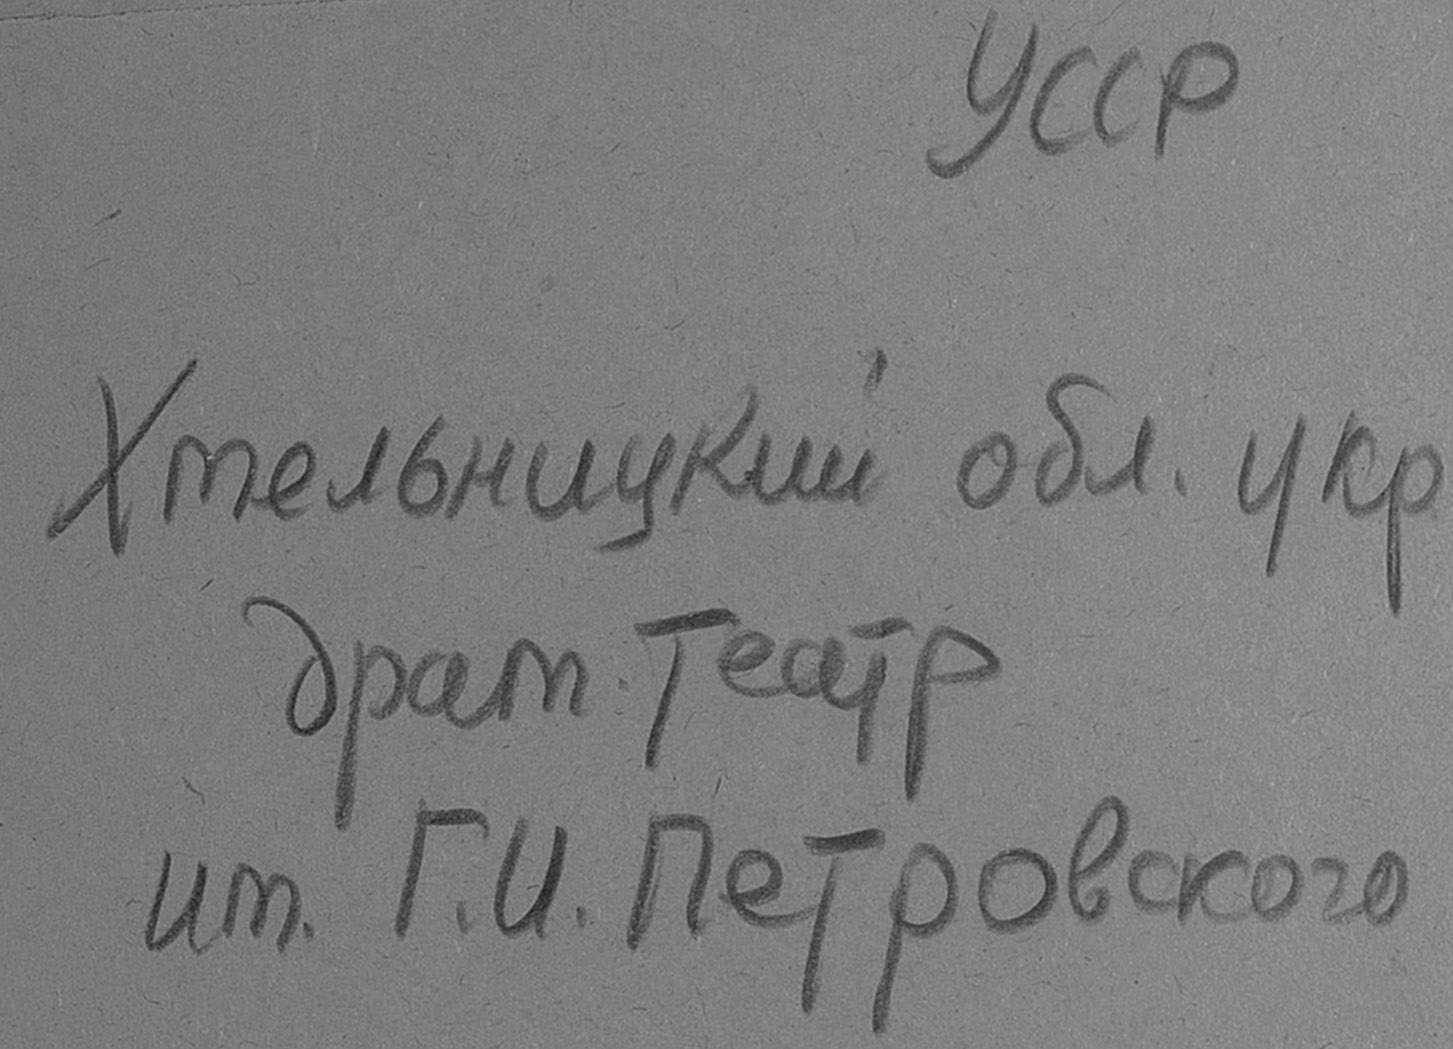 УССР
Хмельницкий обл. укр
драм. театр
им. Г.И. Петровского